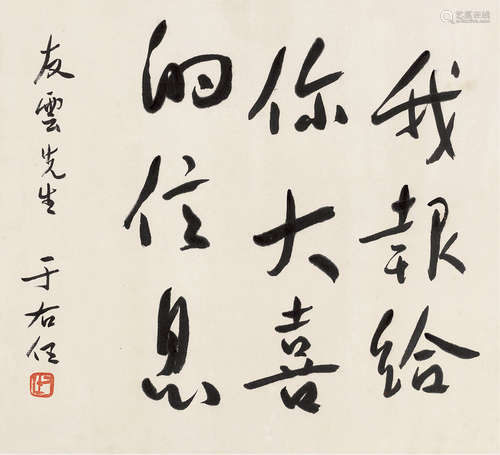 我報給
你大喜
的信息
友雲先生
于右任